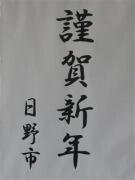 謹賀新年
日野市